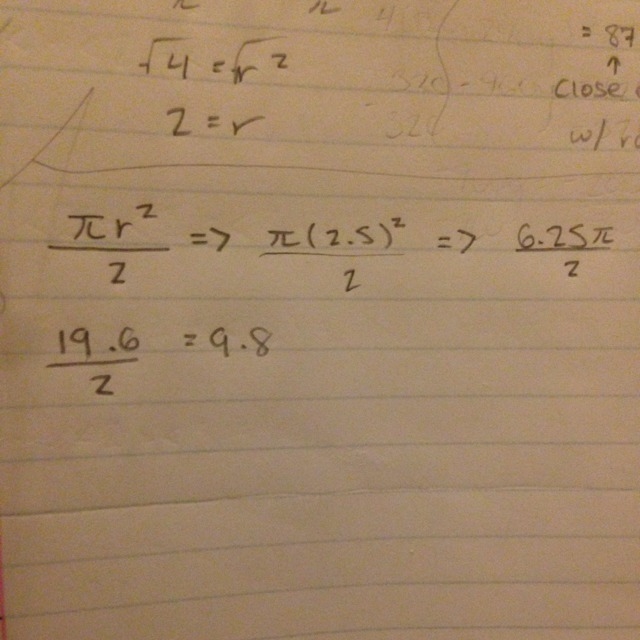 √4 = √r²
= 87
↑
2 = r
close
w/
πr²/2 => π(2.5)²/2 => 6.25π/2
19.6/2 = 9.8